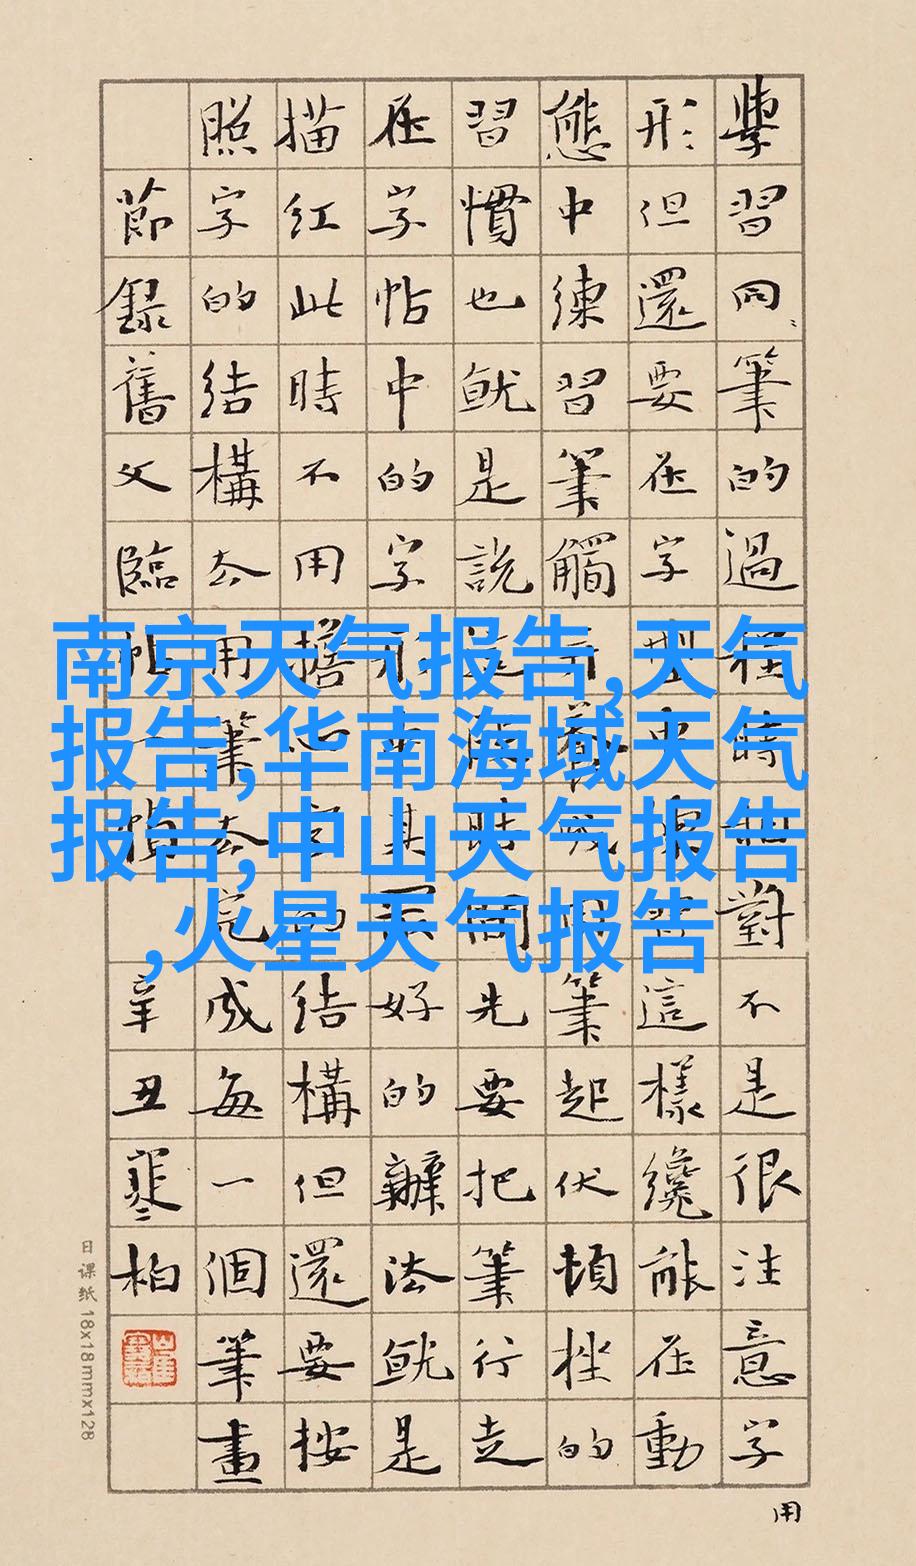 學習同筆的過程時對不是很注意字
形但還要在字中這樣纔能在動
態中練習筆觸養成用筆起伏頓挫的
習慣也就是說間先要把筆行走
在字帖中的字其好的辦法就是
描紅此時不用擔心字的結構但還要按
照字的結構去用筆去完成每一個筆畫
節錄舊文臨帖一
辛丑寒柏
用
日课纸 18x18mmx128
南京天气报告,天气
报告,华南海域天气
报告,中山天气报告
,火星天气报告